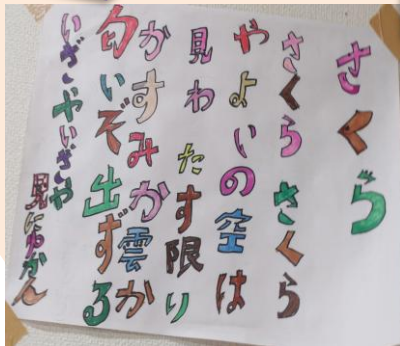 さくら
さくら さくら
やよいの空は
見わたす限り
かすみか雲か
匂いぞ出ずる
いざやいざや
見にゆかん